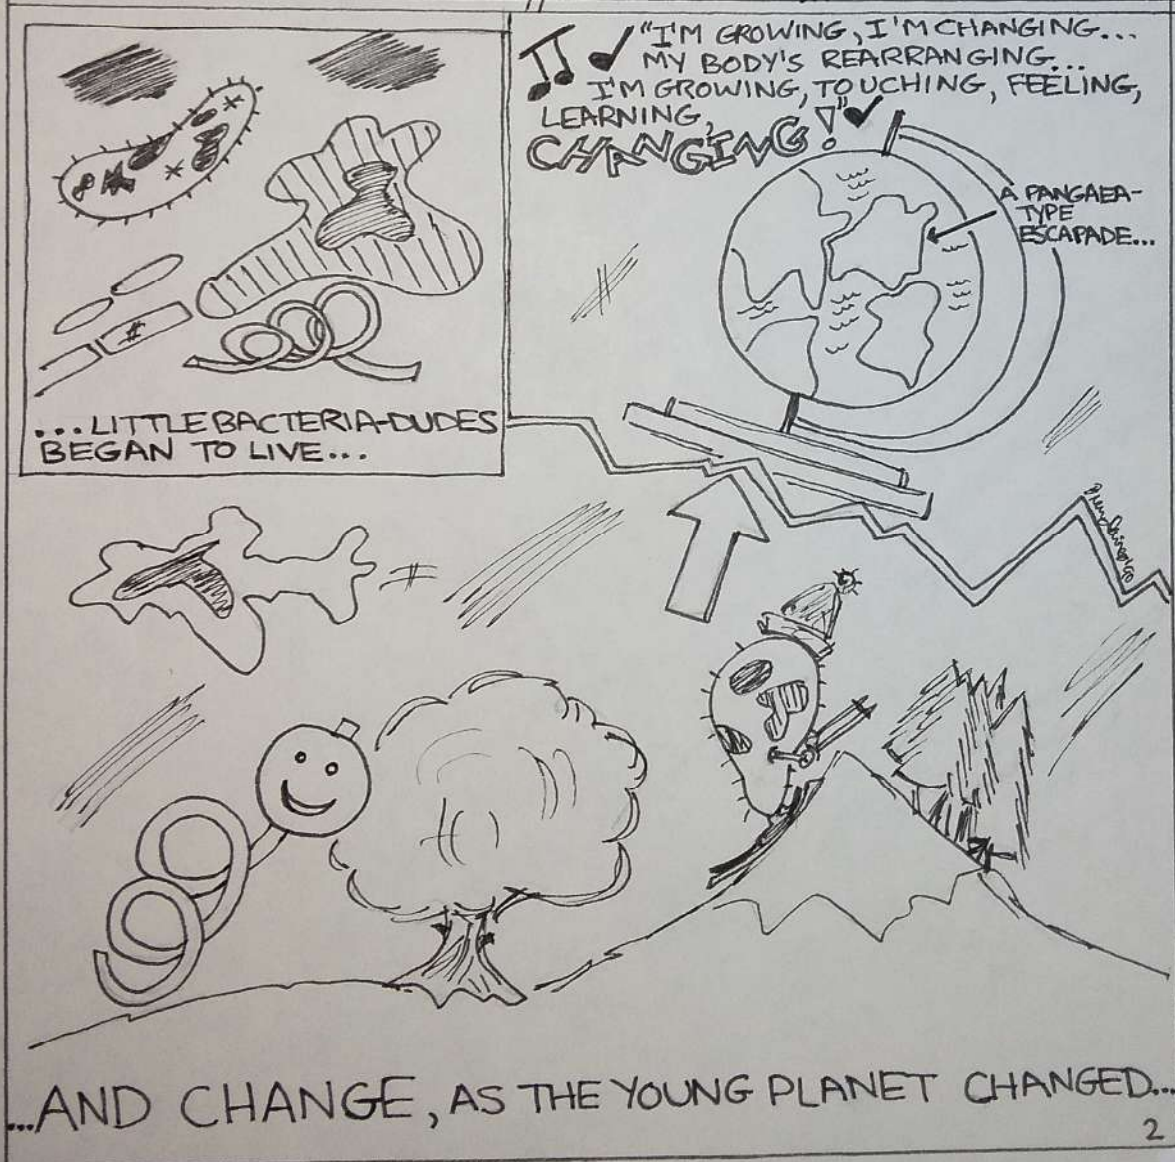 ...LITTLE BACTERIA-DUDES
BEGAN TO LIVE...
"I'M GROWING, I'M CHANGING...
MY BODY'S REARRANGING...
I'M GROWING, TOUCHING, FEELING,
LEARNING,
CHANGING!"
A PANGAEA-
TYPE
ESCAPADE...
...AND CHANGE, AS THE YOUNG PLANET CHANGED...
2